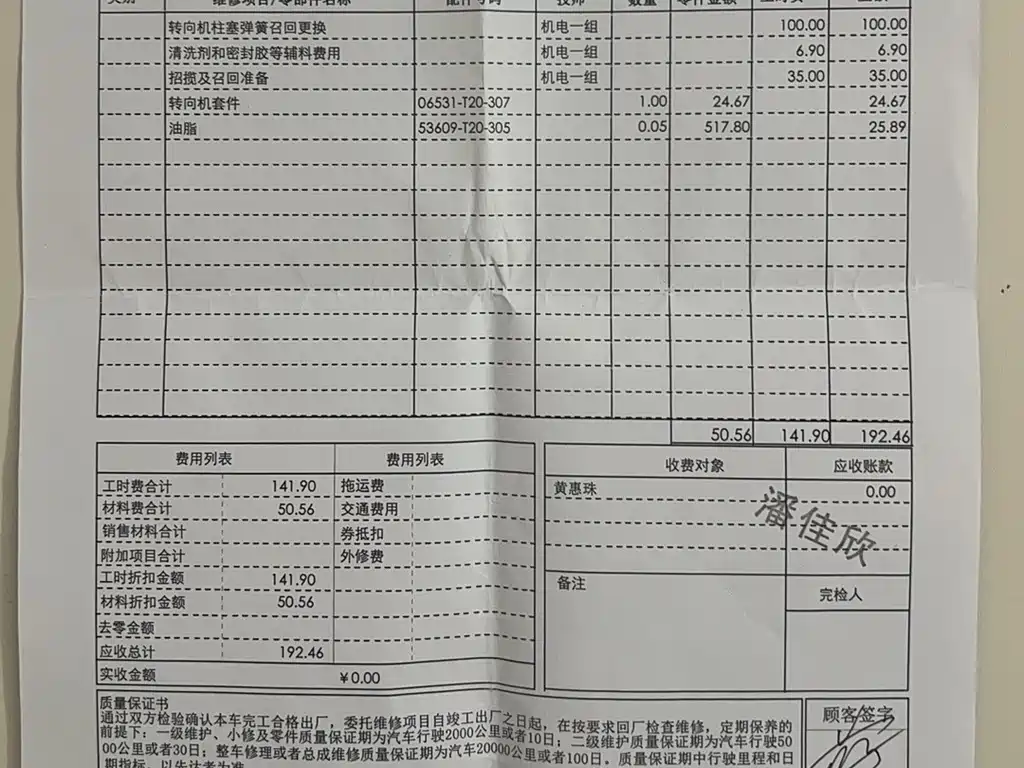 维修项目/零部件名称 数量 零件金额
转向机柱塞弹簧召回更换 机电一组 100.00 100.00
清洗剂和密封胶等辅料费用 机电一组 6.90 6.90
招揽及召回准备 机电一组 35.00 35.00
转向机套件 06531-T20-307 1.00 24.67 24.67
油脂 53609-T20-305 0.05 517.80 25.89
50.56 141.90 192.46
费用列表 费用列表
工时费合计 141.90 拖运费
材料费合计 50.56 交通费用
销售材料合计 券抵扣
附加项目合计 外修费
工时折扣金额 141.90
材料折扣金额 50.56
去零金额
应收总计 192.46
实收金额 ¥0.00
收费对象 应收账款
黄惠珠 0.00
潘佳欣
备注 完检人
质量保证书
通过双方检验确认本车完工合格出厂，委托维修项目自竣工出厂之日起，在按要求回厂检查维修，定期保养的
前提下：一级维护、小修及零件质量保证期为汽车行驶2000公里或者10日；二级维护质量保证期为汽车行驶50
00公里或者30日；整车修理或者总成维修质量保证期为汽车20000公里或者100日。质量保证期中行驶里程和日
期指标，以先达者为准
顾客签字